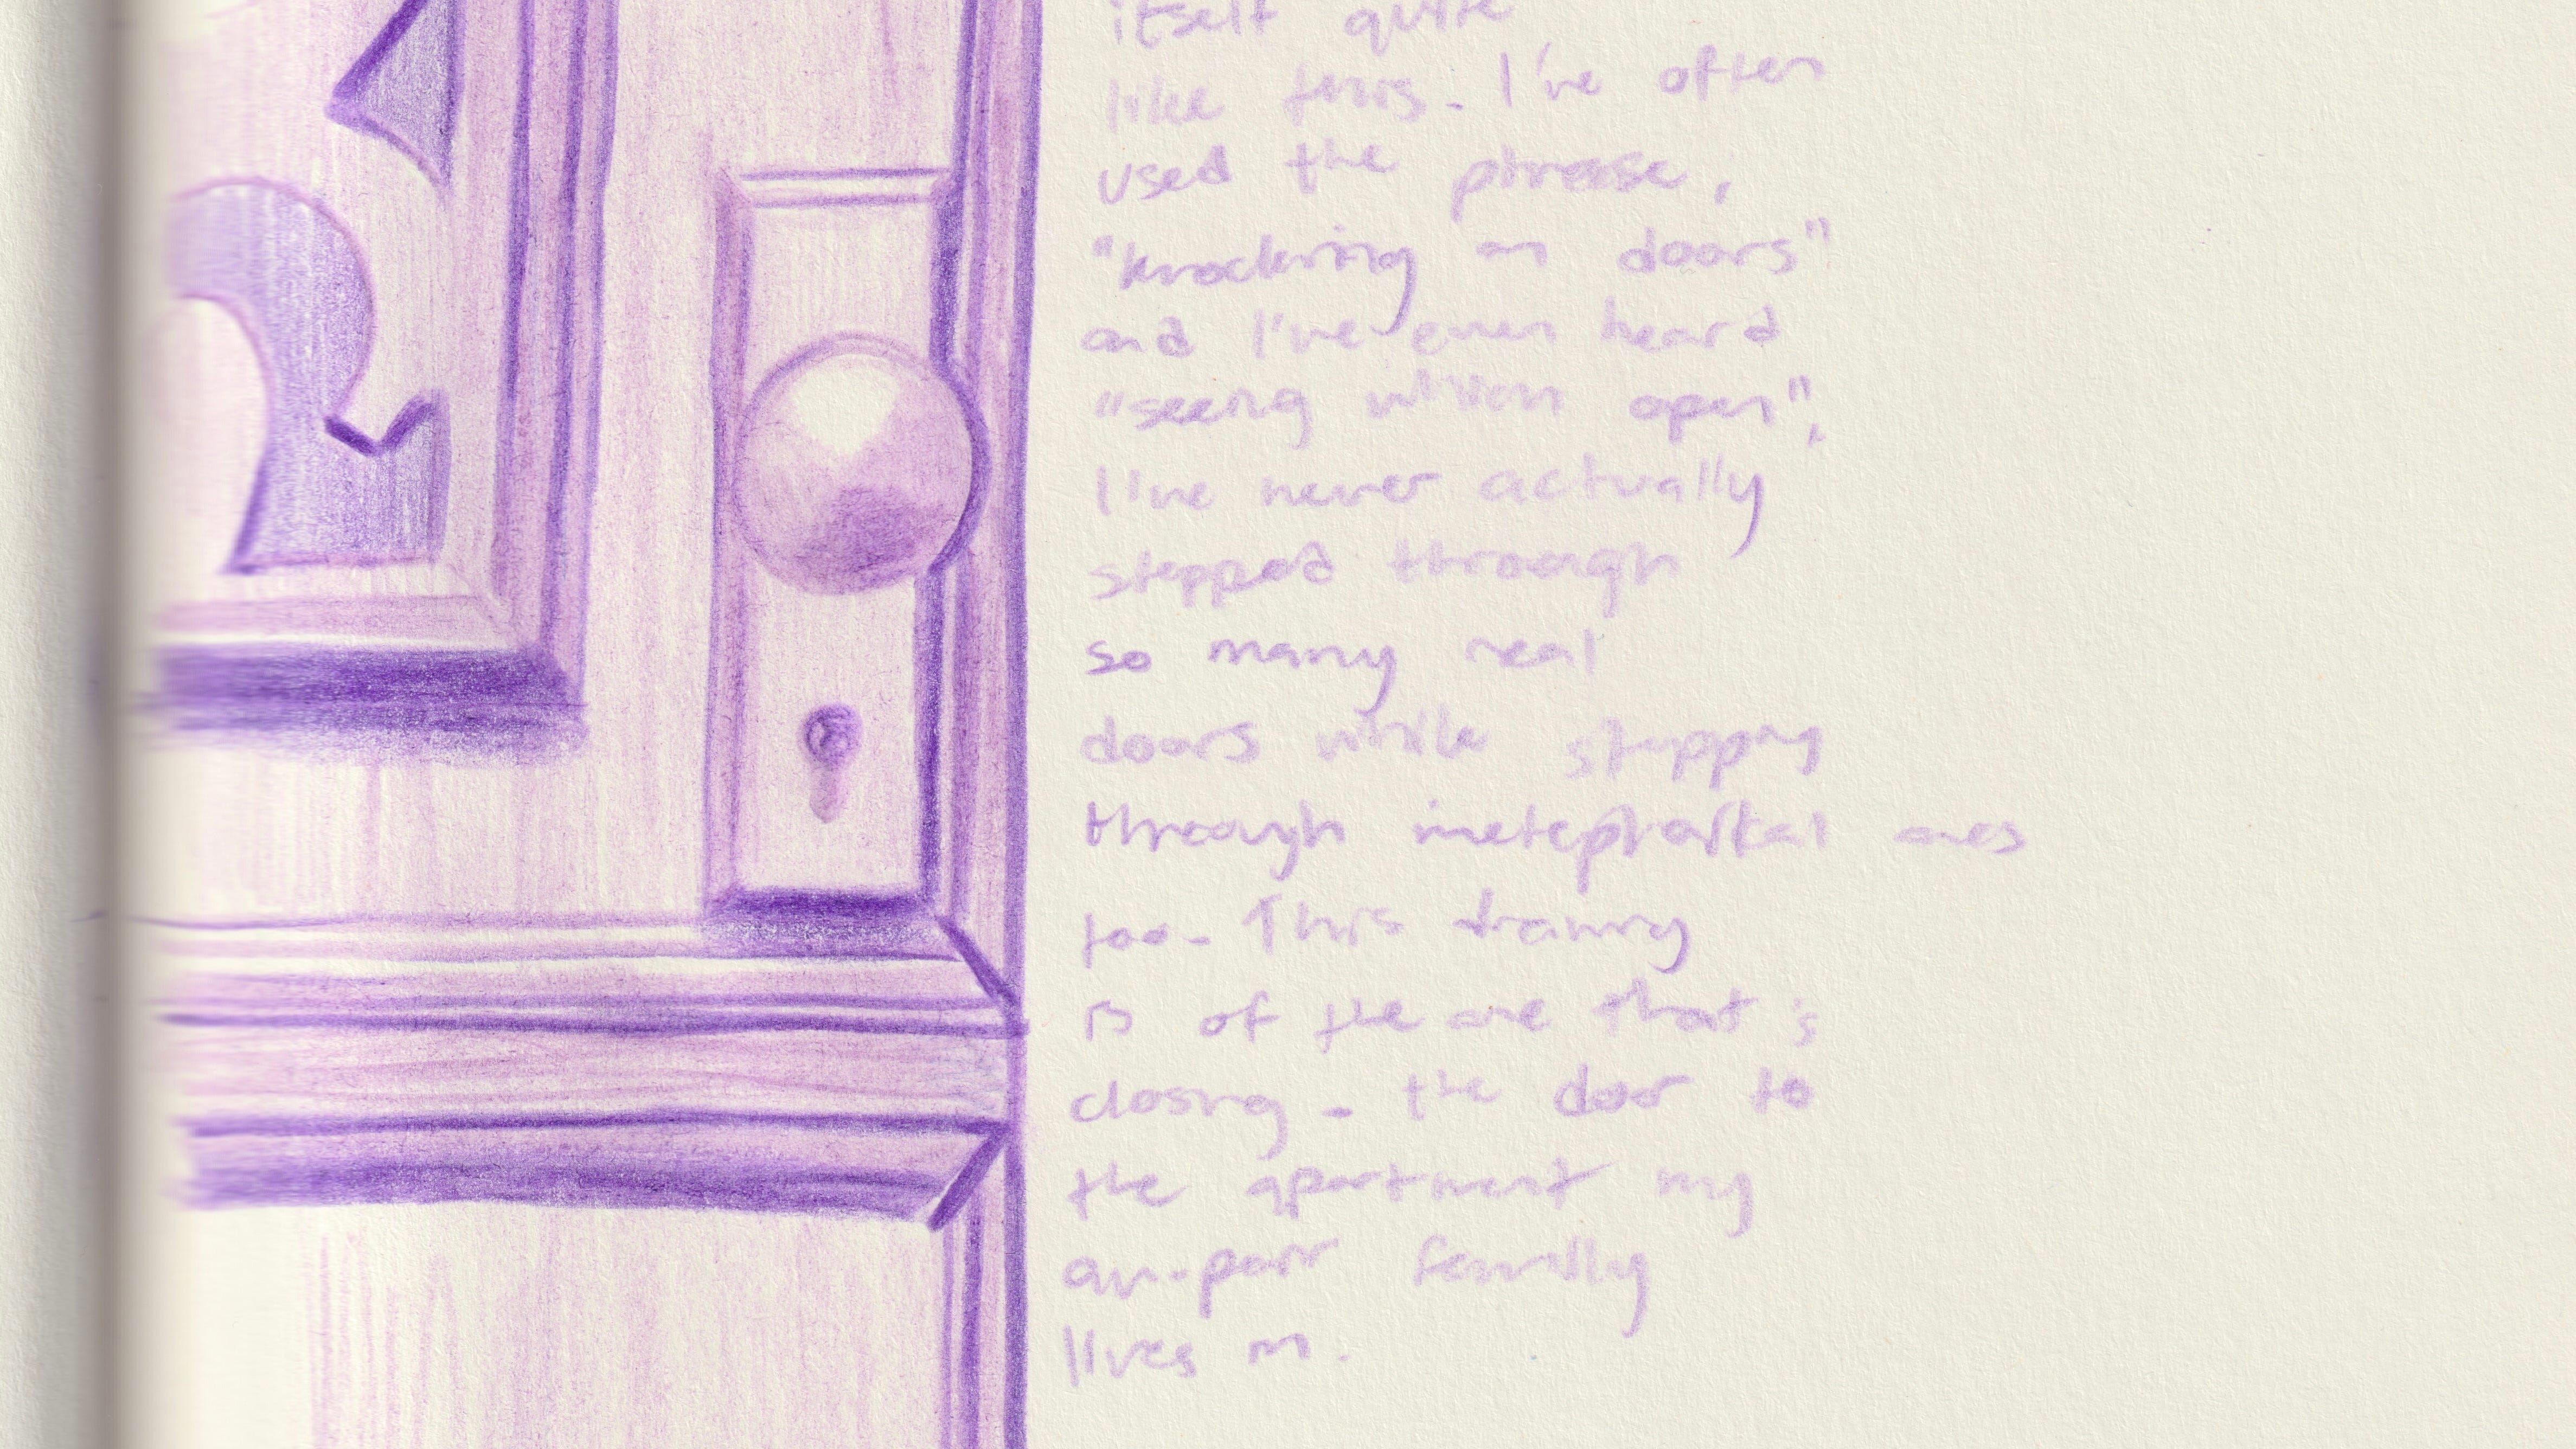 itself quite
like this. I've often
used the phrase,
"knocking on doors"
and I've even heard
"seeing which open",
I've never actually
stepped through
so many real
doors while stepping
through metephorical ones
too. This drawing
is of the one that's
closing - the door to
the apartment my
au-pair family
lives in.